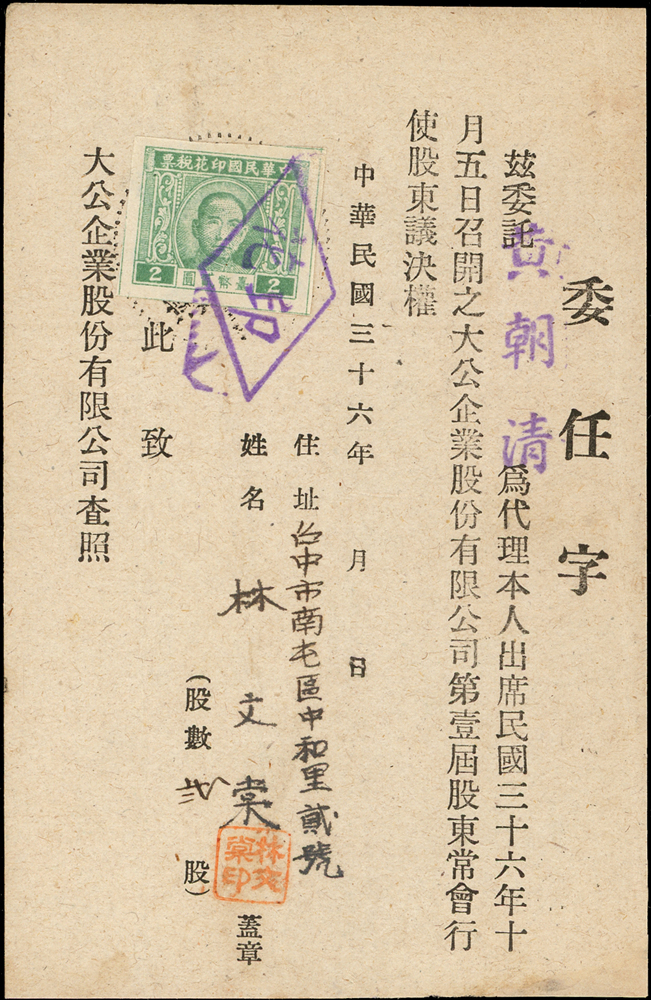 委任字
茲委託黃朝清爲代理本人出席民國三十六年十
月五日召開之大公企業股份有限公司第壹屆股東常會行
使股東議決權
中華民國三十六年 月 日
住址 台中市南屯區中和里貳號
姓名 林文棠 蓋章
(股數 弍 股)
此致
大公企業股份有限公司查照
中華民國印花稅票
2
圓
2
花印